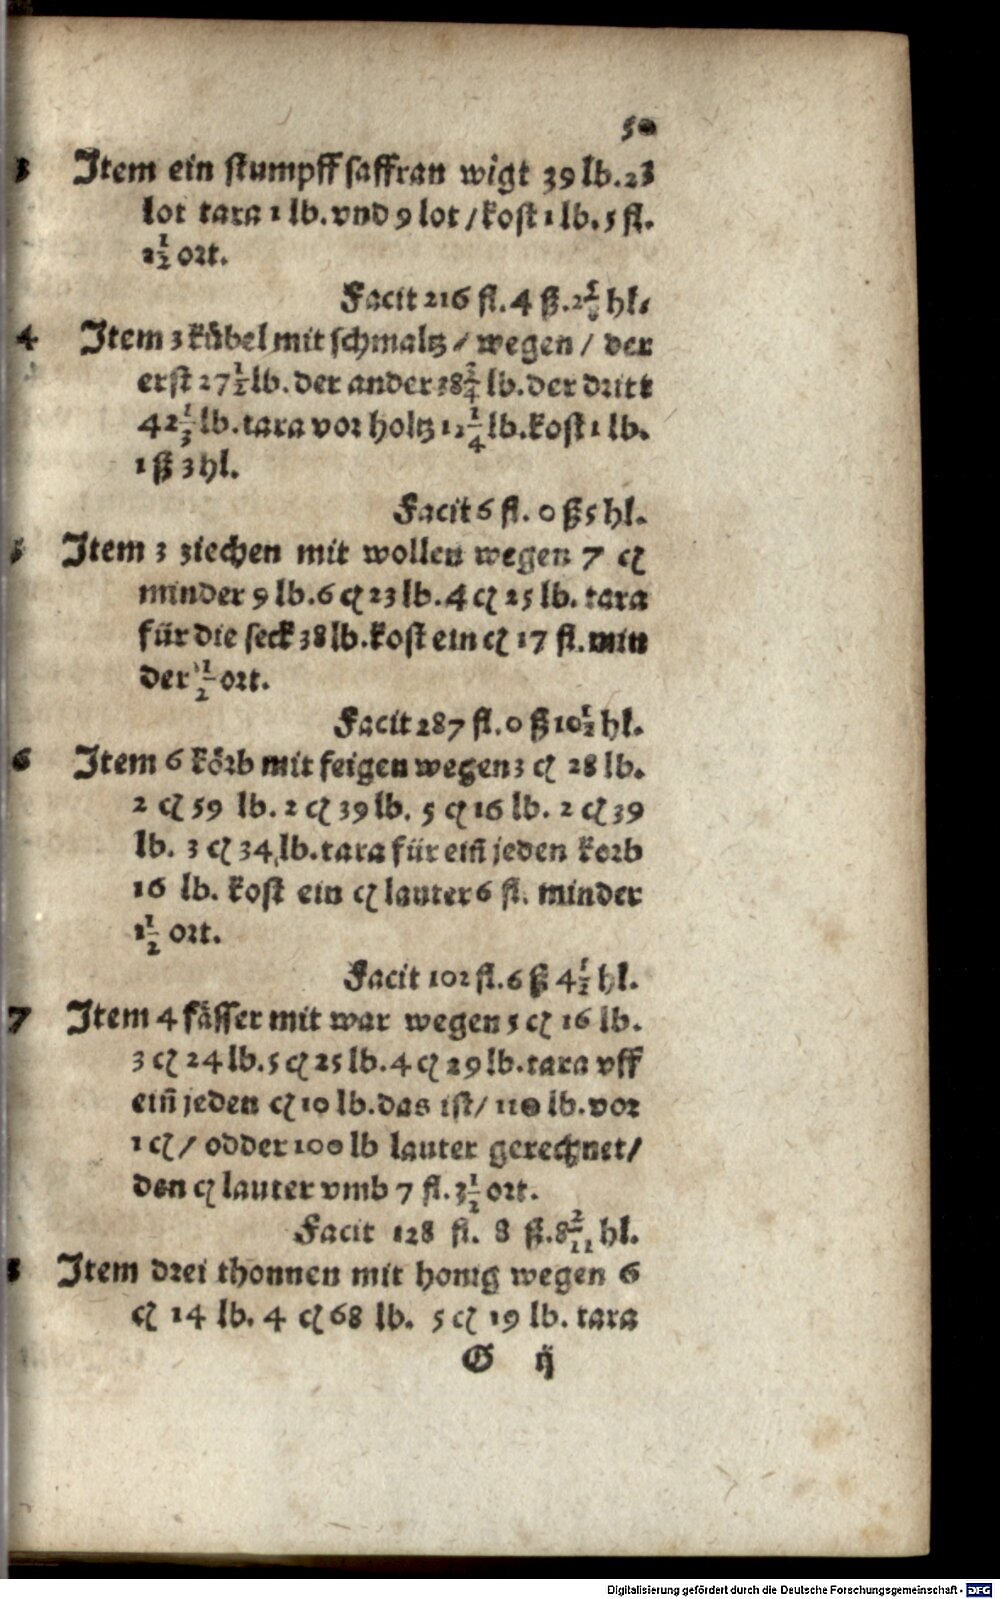 50
3 Item ein stumpff saffran wigt 39 lb. 23
lot tara 1 lb. vnd 9 lot / kost 1 lb. 5 fl.
2½ ort.
Facit 216 fl. 4 ß. hl.
4 Item 3 kübel mit schmaltz / wegen / der
erst 27½ lb. der ander 38¾ lb. der dritt
42⅓ lb. tara vor holtz 12¼ lb. kost 1 lb.
1 ß 3 hl.
Facit 6 fl. 0 ß 5 hl.
5 Item 3 ziechen mit wollen wegen 7 cʒ
minder 9 lb. 6 cʒ 23 lb. 4 cʒ 25 lb. tara
für die seck 38 lb. kost ein cʒ 17 fl. min
der ½ ort.
Facit 287 fl. 0 ß 10½ hl.
6 Item 6 körb mit feigen wegen 3 cʒ 28 lb.
2 cʒ 59 lb. 2 cʒ 39 lb. 5 cʒ 16 lb. 2 cʒ 39
lb. 3 cʒ 34 lb. tara für ein̄ jeden korb
16 lb. kost ein cʒ lauter 6 fl. minder
1½ ort.
Facit 102 fl. 6 ß 4½ hl.
7 Item 4 fässer mit war wegen 5 cʒ 16 lb.
3 cʒ 24 lb. 5 cʒ 25 lb. 4 cʒ 29 lb. tara vff
ein̄ jeden cʒ 10 lb. das ist / 110 lb. vor
1 cʒ / odder 100 lb lauter gerechnet /
den cʒ lauter vmb 7 fl. 3½ ort.
Facit 128 fl. 8 ß. 8 2/11 hl.
8 Item drei thonnen mit honig wegen 6
cʒ 14 lb. 4 cʒ 68 lb. 5 cʒ 19 lb. tara
G ij
Digitalisierung gefördert durch die Deutsche Forschungsgemeinschaft - DFG